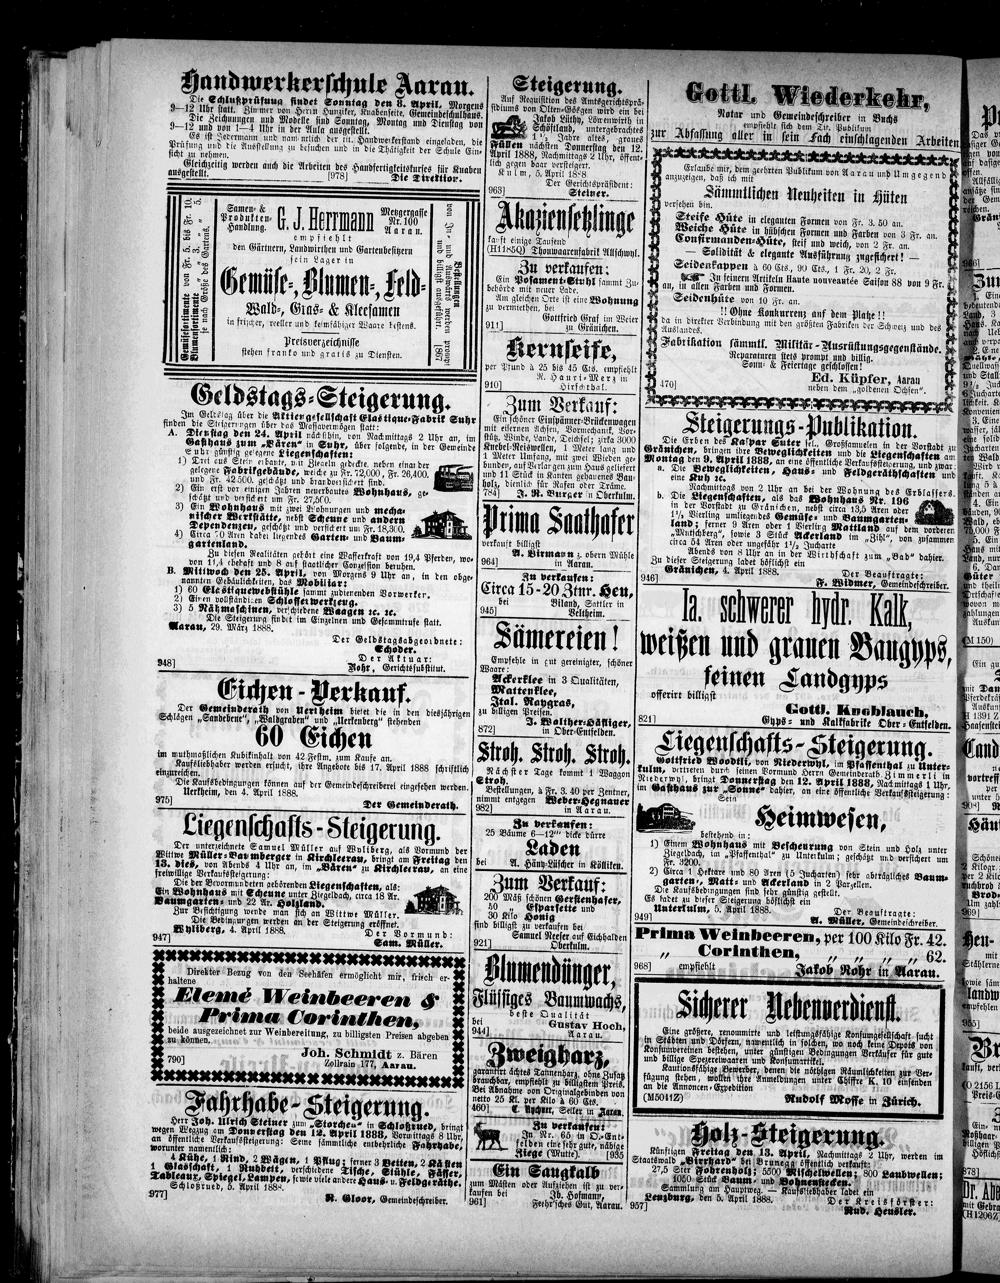 Handwerkerschule Aarau.
Die Schlußprüfung findet Sonntag den 8. April, Morgens
9—12 Uhr statt. Zimmer von Herrn Hunziker, Knabenseite, Gemeindeschulhaus.
Die Zeichnungen und Modelle sind Sonntag, Montag und Dienstag von
9—12 und von 1—4 Uhr in der Aula ausgestellt.
Es ist Jedermann und namentlich der tit. Handwerkerstand eingeladen, die
Prüfung und die Ausstellung zu besuchen und in die Thätigkeit der Schule Ein-
sicht zu nehmen.
Gleichzeitig werden auch die Arbeiten des Handfertigkeitskurses für Knaben
ausgestellt. [978] Die Direktion.
Gemüsesortimente von Fr. 5. bis Fr. 10.
Blumensortimente „ „ 3. „ „ 5.
je nach Größe des Gartens.
Samen- &
Produkten-
Handlung.
G. J. Herrmann
Metzgergasse
Nr. 100
Aarau.
empfiehlt
den Gärtnern, Landwirthen und Gartenbesitzern
sein Lager in
Gemüse-, Blumen-, Feld-
Wald-, Gras- & Kleesamen
in frischer, reeller und keimfähiger Waare bestens.
Preisverzeichnisse
stehen franko und gratis zu Diensten.
Bestellungen
von In- und Auslandes werden prompt
und billigst ausgeführt. [867
Geldstags-Steigerung.
Im Geldstag über die Aktiengesellschaft Elastique-Fabrik Suhr
finden die Steigerungen über das Massavermögen statt:
A. Dienstag den 24. April nächsthin, von Nachmittags 2 Uhr an, im
Gasthaus zum „Bären“ in Suhr, über folgende, in der Gemeinde
Suhr günstig gelegene Liegenschaften:
1) Drei aus Stein erbaute, mit Ziegeln gedeckte, neben einander
gelegene Fabrikgebäude, welche zu Fr. 72,000, Fr. 26,400.
und Fr. 42,500. geschätzt und brandversichert sind.
2) Ein erst vor einigen Jahren neuerbautes Wohnhaus, ge-
schätzt und versichert um Fr. 27,500.
3) Ein Wohnhaus mit zwei Wohnungen und mecha-
nischer Werkstätte, nebst Scheune und andern
Dependenzen, geschätzt und versichert um Fr. 18,300.
4) Circa 70 Aren dabei liegendes Garten- und Baum-
gartenland.
Zu diesen Realitäten gehört eine Wasserkraft von 19,4 Pferden, wo-
von 11,4 ehehaft und 8 auf staatlicher Conzession beruhen.
B. Mittwoch den 25. April, von Morgens 9 Uhr an, in den obge-
nannten Gebäulichkeiten, das Mobiliar:
1) 60 Elastiquewebstühle sammt zudienenden Vorwerker.
2) Einen vollständigen Schlosserwerkzeug.
3) 5 Nähmaschinen, verschiedene Waagen ꝛc. ꝛc.
Die Steigerung findet im Einzelnen und Gesammtrufe statt.
Aarau, 29. März 1888.
Der Geldstagsabgeordnete:
Schoder.
Der Aktuar:
948] Rohr, Gerichtssubstitut.
Eichen-Verkauf.
Der Gemeinderath von Uerkheim bietet die in den diesjährigen
Schlägen „Sandebene“, „Waldgraben“ und „Uerkenberg“ stehenden
60 Eichen
im muthmaßlichen Kubikinhalt von 42 Festm. zum Kaufe an.
Kaufsliebhaber werden ersucht, ihre Angebote bis 17. April 1888 schriftlich
einzureichen.
Die Kaufsbedingungen können auf der Gemeindeschreiberei eingesehen werden.
Uerkheim, den 4. April 1888.
975] Der Gemeinderath.
Liegenschafts-Steigerung.
Der unterzeichnete Samuel Müller auf Wyliberg, als Vormund der
Wittwe Müller-Baumberger in Kirchleerau, bringt am Freitag den
13. dies, von Abends 4 Uhr an, im „Bären“ zu Kirchleerau, an eine
freiwillige Verkaufssteigerung:
Die der Bevormundeten gehörenden Liegenschaften, als:
Ein Wohnhaus mit Scheune unter Ziegeldach, circa 18 Ar.
Baumgarten- und 22 Ar. Holzland.
Zur Besichtigung wende man sich an Wittwe Müller.
Die Bedingungen werden an der Steigerung eröffnet.
Wyliberg, 4. April 1888. Der Vormund:
947] Sam. Müller.
Direkter Bezug von den Seehäfen ermöglicht mir, frisch er-
haltene
Elemé Weinbeeren &
Prima Corinthen,
beide ausgezeichnet zur Weinbereitung, zu billigsten Preisen abgeben
zu können.
Joh. Schmidt z. Bären
790] Zollrain 177, Aarau.
Fahrhabe-Steigerung.
Herr Joh. Ulrich Steiner zum „Storchen“ in Schloßrued, bringt
wegen Wegzug am Donnerstag den 12. April 1888, Vormittags 8 Uhr,
an öffentliche Verkaufssteigerung: Seine sämmtliche entbehrliche Fahrhabe,
worunter namentlich:
4 Kühe, 1 Rind, 2 Wägen, 1 Pflug; ferner 3 Betten, 2 Kästen
1 Glasschaft, 1 Ruhbett, verschiedene Tische, Stühle, Fässer,
Tableaux, Spiegel, Lampen, sowie viele andere Haus- u. Feldgeräthe.
Schloßrued, 5. April 1888.
977] R. Gloor, Gemeindeschreiber.
Steigerung.
Auf Requisition des Amtsgerichtsprä-
sidiums von Olten-Gösgen wird ein bei
Jakob Lüthy, Löwenwirth in
Schöftland, untergebrachtes
1½ Jahre altes, graues
Füllen nächsten Donnerstag den 12.
April 1888, Nachmittags 2 Uhr, öffent-
lich gegen baar versteigert.
Kulm, 5. April 1888.
Der Gerichtspräsident:
963] Steiner.
Akaziensetzlinge
kauft einige Tausend
(H1185Q) Thonwaarenfabrik Allschwyl.
Zu verkaufen:
Ein Posament-Stuhl sammt Zu-
behörde mit neuer Lade.
Am gleichen Orte ist eine Wohnung
zu vermiethen, bei
Gottfried Graf im Weier
911] zu Gränichen.
Kernseife,
per Pfund à 25 bis 45 Cts. empfiehlt
R. Hauri-Merz in
910] Hirschthal.
Zum Verkauf:
Ein schöner Einspänner-Brückenwagen
mit eisernen Achsen, Vormechanik, Vor-
stütz, Winde, Lande, Deichsel; zirka 3000
Kuebel-Reiswellen, 1 Meter lang und
1 Meter Umfang, mit zwei Wieden ge-
bunden, auf Verlangen zum Haus geliefert
und 11 Stück in Kanten gehauenes Bau-
holz, dienlich für Rafen oder Träme.
784] J. R. Burger in Oberkulm.
Prima Saathafer
verkauft billigst
A. Birmann z. obern Mühle
964] in Aarau.
Zu verkaufen:
Circa 15-20 Ztnr. Heu,
bei Biland, Sattler in
945] Veltheim.
Sämereien!
Empfehle in gut gereinigter, schöner
Waare:
Ackerklee in 3 Qualitäten,
Mattenklee,
Ital. Raygras,
zu billigen Preisen.
J. Walther-Häfliger,
872] in Ober-Entfelden.
Stroh. Stroh. Stroh.
Nächster Tage kommt 1 Waggon
Stroh.
Bestellungen, à Fr. 3. 40 per Zentner,
nimmt entgegen Weber-Hegnauer
982] in Aarau.
Zu verkaufen:
25 Bäume 6—12''' dicke dürre
Laden
bei A. Häny-Lüscher in Kölliken.
Zum Verkauf:
200 Mäß schönen Gerstenhafer,
50 „ Esparsette und
30 Kilo Honig
sind billigst zu verkaufen bei
Samuel Neeser auf Eichhalden
921] Oberkulm.
Blumendünger,
Flüssiges Baumwachs,
beste Qualität
bei Gustav Hoch,
944] Aarau.
Zweigharz,
garantirt ächtes Tannenharz, ohne Zusatz
brauchbar, empfiehlt zu billigstem Preis.
Bei Abnahme von Originalgebinden von
netto 25 Kl. per Kilo à 60 Cts.
460] C. Kyburz, Seiler in Aarau.
Zu verkaufen:
In Nr. 65 in O.-Ent-
felden eine sehr gute, nähige
Ziege (Mutte). [935
Ein Saugkalb
zum Mästen oder Aufziehen ist zu ver-
kaufen bei Jb. Hofmann,
961] Feehr'sches Gut, Aarau.
Gottl. Wiederkehr,
Notar und Gemeindeschreiber in Buchs
empfiehlt sich dem Tit. Publikum
zur Abfassung aller in sein Fach einschlagenden Arbeiten
Erlaube mir, dem geehrten Publikum von Aarau und Umgegend
anzuzeigen, daß ich mit
Sämmtlichen Neuheiten in Hüten
versehen bin.
Steife Hüte in eleganten Formen von Fr. 3. 50 an.
Weiche Hüte in hübschen Formen und Farben von 3 Fr. an.
Confirmanden-Hüte, steif und weich, von 2 Fr. an.
— Solidität & elegante Ausführung zugesichert! —
Seidenkappen à 60 Cts., 90 Cts., 1 Fr. 20, 2 Fr.
☞ In feinern Artikeln Haute nouveautée Saison 88 von 9 Fr.
an, in allen Farben und Formen.
Seidenhüte von 10 Fr. an.
!! Ohne Konkurrenz auf dem Platze !!
da in direkter Verbindung mit den größten Fabriken der Schweiz und des
Auslandes.
Fabrikation sämmtl. Militär-Ausrüstungsgegenstände.
Reparaturen stets prompt und billig.
Sonn- & Feiertage geschlossen!
Ed. Küpfer, Aarau
470] neben dem „goldenen Ochsen“.
Steigerungs-Publikation.
Die Erben des Kaspar Suter sel., Großsamuelen in der Vorstadt zu
Gränichen, bringen ihre Beweglichkeiten und die Liegenschaften am
Montag den 9. April 1888, an eine öffentliche Verkaufssteigerung, und zwar:
a. Die Beweglichkeiten, Haus- und Feldgeräthschaften, sowie
eine Kuh ꝛc.
Nachmittags von 2 Uhr an bei der Wohnung des Erblassers.
b. Die Liegenschaften, als das Wohnhaus Nr. 196
in der Vorstadt zu Gränichen, nebst circa 13,5 Aren oder
1½ Vierling umliegendes Gemüse- und Baumgarten-
land; ferner 9 Aren oder 1 Vierling Mattland auf dem vorderen
„Meuschberg“, sowie 3 Stück Ackerland im „Bihl“, von zusammen
circa 54 Aren oder ungefähr 1½ Jucharte
Abends von 8 Uhr an in der Wirthschaft zum „Bad“ dahier.
Zu dieser Steigerung ladet höflichst ein
Gränichen, 4. April 1888. Der Beauftragte:
946] F. Widmer, Gemeindeschreiber.
Ia. schwerer hydr. Kalk,
weißen und grauen Baugyps,
feinen Landgyps
offerirt billigst
Gottl. Knoblauch,
821] Gyps- und Kalkfabrik Ober-Entfelden.
Liegenschafts-Steigerung.
Gottfried Woodtli, von Niederwyl, im Pfaffenthal zu Unter-
kulm, vertreten durch seinen Vormund Herrn Gemeinderath Zimmerli in
Niederwyl, bringt Donnerstag den 12. April 1888, Nachmittags 1 Uhr,
im Gasthaus zur „Sonne“ dahier, an eine öffentliche Verkaufssteigerung:
Sein
Heimwesen,
bestehend in:
1) Einem Wohnhaus mit Bescheurung von Stein und Holz unter
Ziegeldach, im „Pfaffenthal“ zu Unterkulm; geschätzt und versichert um
Fr. 3200.
2) Circa 1 Hektare und 80 Aren (5 Jucharten) sehr abträgliches Baum-
garten-, Matt- und Ackerland in 2 Parzellen.
Die Kaufsbedingungen sind sehr günstig gestellt.
Es ladet zu dieser Steigerung höflichst ein
Unterkulm, 5. April 1888. Der Beauftragte:
949] A. Müller, Gemeindeschreiber.
Prima Weinbeeren, per 100 Kilo Fr. 42.
„ Corinthen, „ „ „ „ 62.
968] empfiehlt Jakob Rohr in Aarau.
Sicherer Nebenverdienst.
Eine größere, renommirte und leistungsfähige Konsumgesellschaft sucht
in Städten und Dörfern, namentlich in solchen, wo noch keine Depots von
Konsumvereinen bestehen, unter günstigen Bedingungen Verkäufer für gute
und billige Spezereiwaaren und Konsumartikel.
Kautionsfähige Bewerber, denen die nöthigen Räumlichkeiten zur Ver-
fügung stehen, wollen ihre Anmeldungen unter Chiffre K. 10 einsenden
an die Annoncen-Expedition
(M5041Z) Rudolf Mosse in Zürich.
Holz-Steigerung.
Künftigen Freitag den 13. April, Nachmittags 2 Uhr, werden im
Staatswald „Birrhard“ bei Brunegg öffentlich verkauft:
27,5 Ster Föhrenholz; 5500 Mischelwellen; 800 Laubwellen;
1050 Stück Baum- und Bohnenstecken.
Sammlung am Hauptweg. — Kaufsliebhaber ladet ein
Lenzburg, den 5. April 1888. Der Kreisförster:
957] Rud. Heusler.